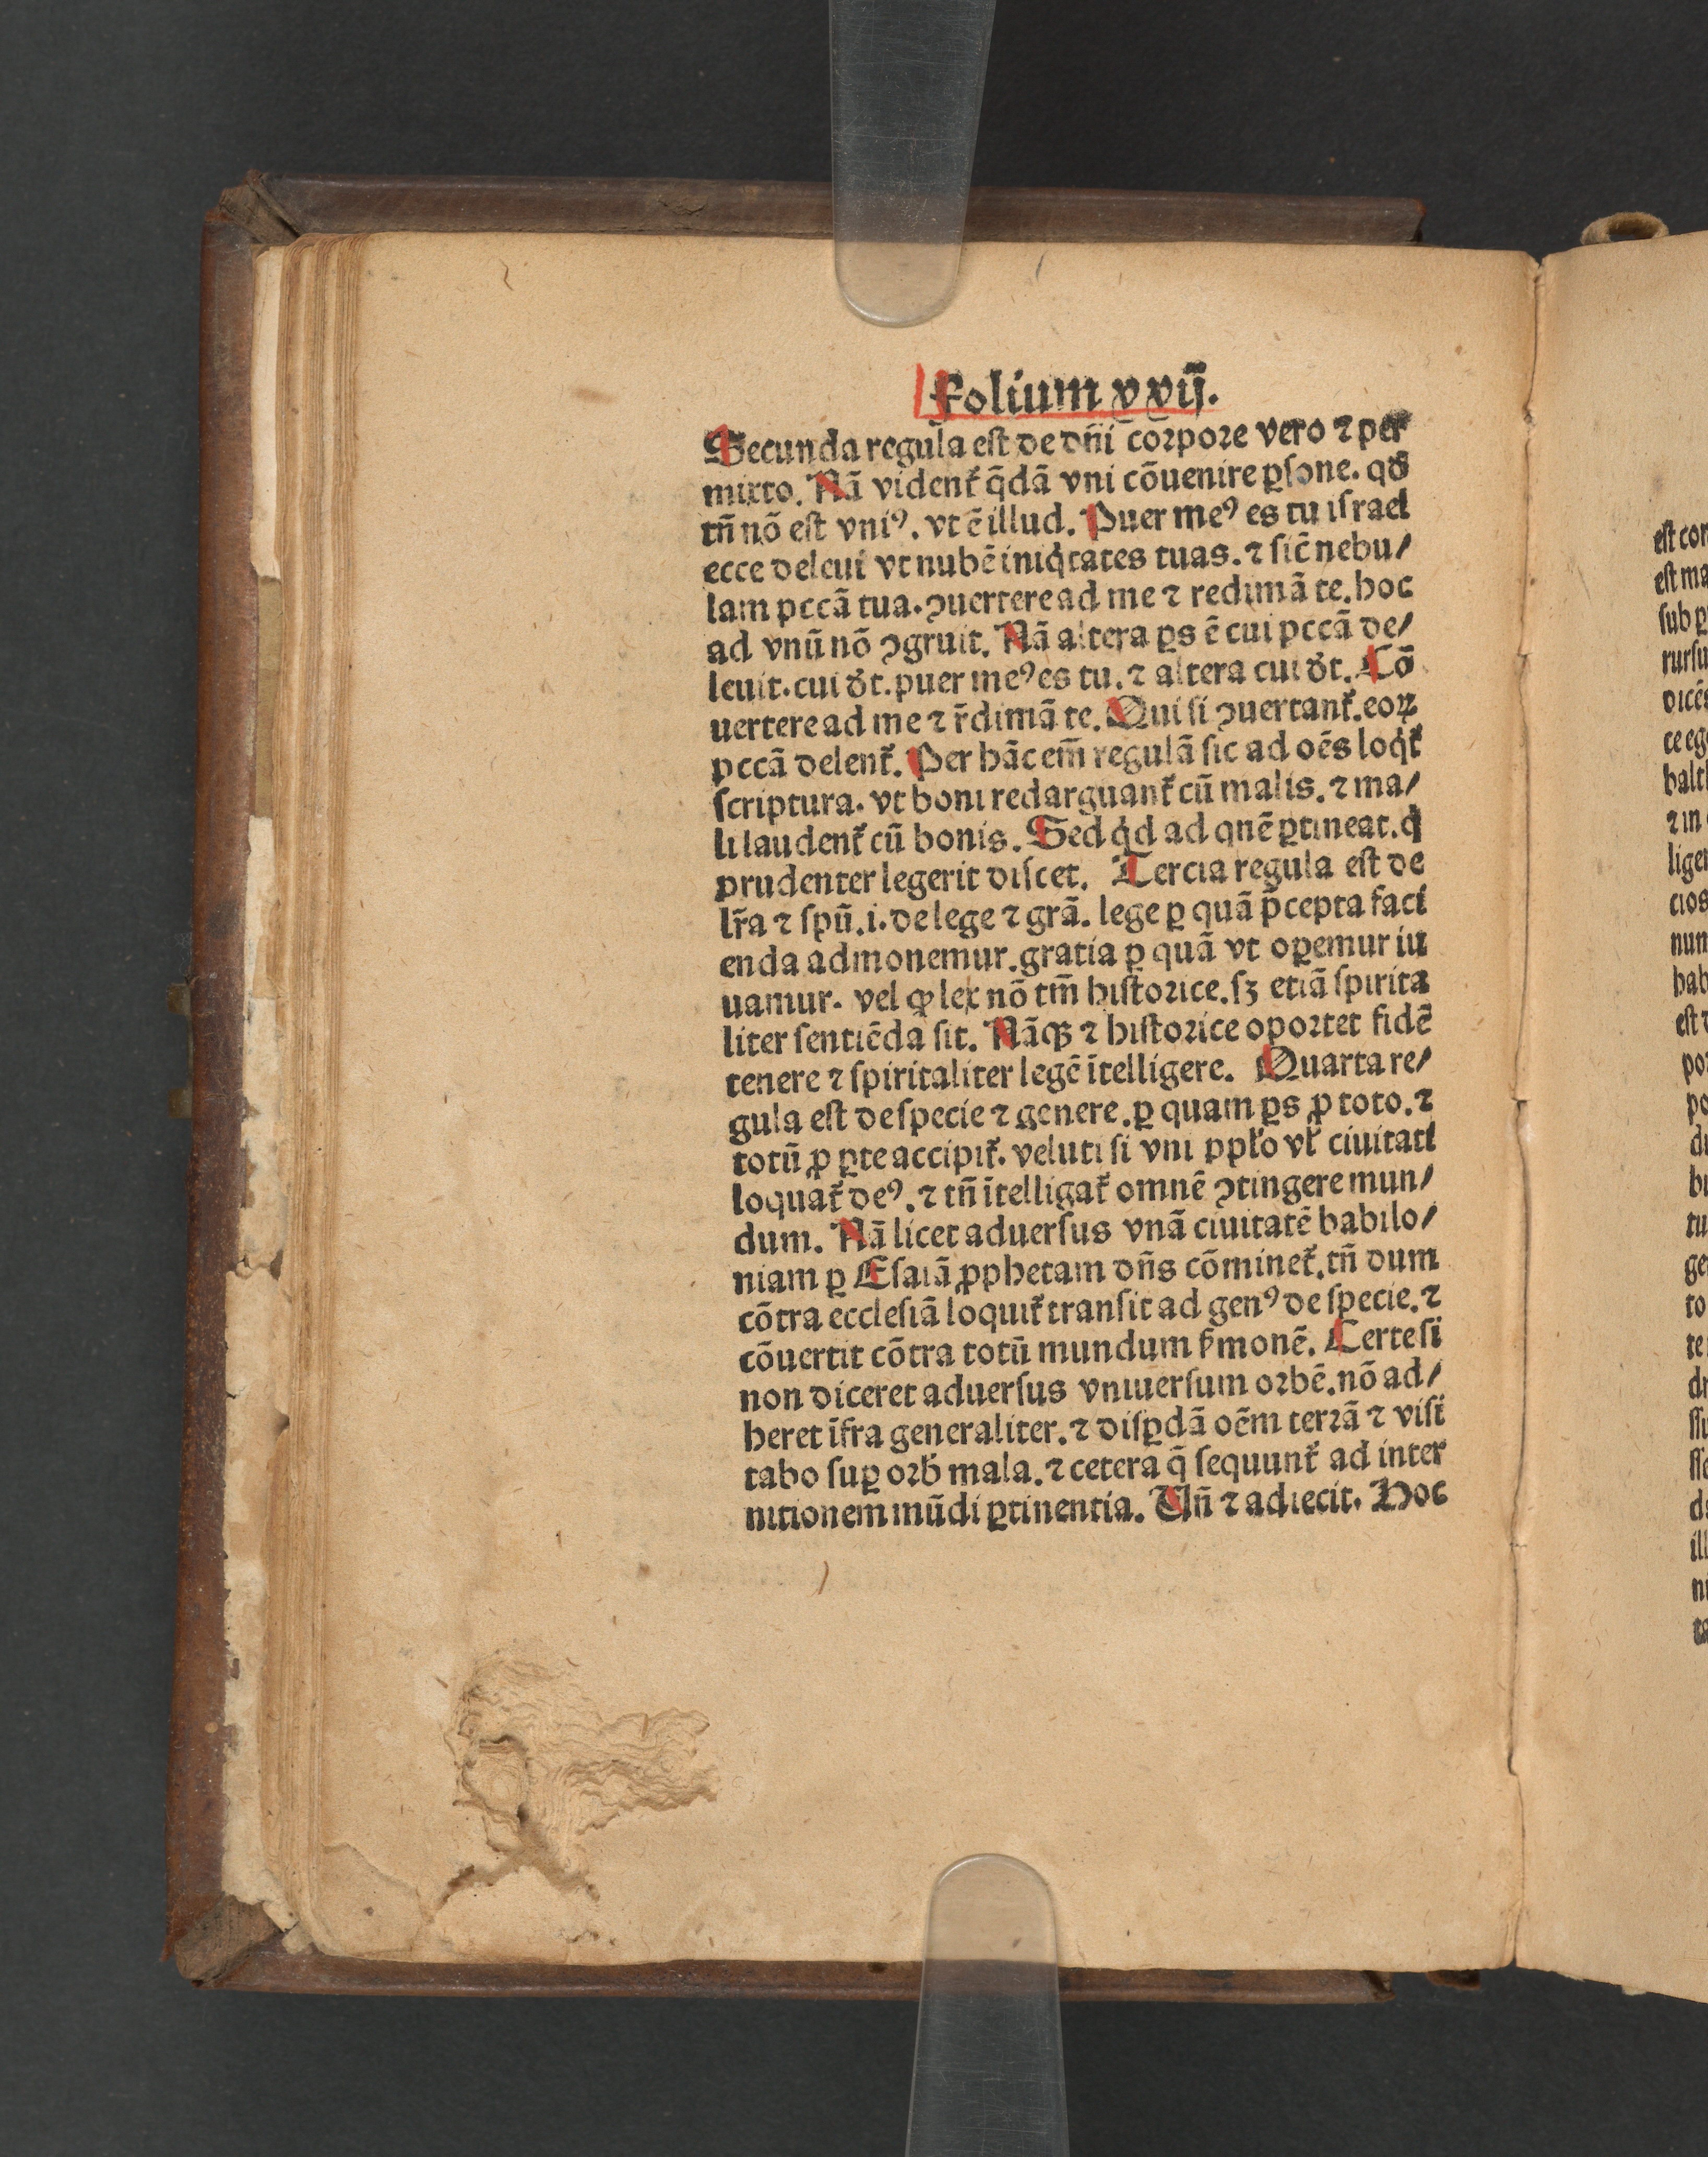 Folium xxij.
Secunda regula est de dn̄i corpore vero ⁊ per
mixto. Nā videnť q̄dā vni cōuenire ꝑsone. qď
tn̄ nō est vniꝰ. vt ē illud. Puer meꝰ es tu israel
ecce deleui vt nubē iniq̇tates tuas. ⁊ sic̄ nebu/
lam pccā tua. ꝯuertere ad me ⁊ redimā te. hoc
ad vnū nō ꝯgruit. Nā altera ꝑs ē cui pccā de/
leuit. cui ďt. puer meꝰ es tu. ⁊ altera cui ďt. Cō
uertere ad me ⁊ r̄dimā te. Qui si ꝯuertanť. eoꝝ
pccā delenť. Per hāc em̄ regulā sic ad oēs loq̇ť
scriptura. vt boni redarguanť cū malis. ⁊ ma/
li laudenť cū bonis. Sed q̇d ad quē ꝑtineat. q̇
prudenter legerit discet. Tercia regula est de
lr̄a ⁊ spū. i. de lege ⁊ grā. lege ꝑ quā p̄cepta faci
enda admonemur. gratia ꝑ quā vt oꝑemur iu
uamur. vel ꝙ lex nō tm̄ historice. sꝫ etiā spirita
liter sentiēda sit. Nāqꝫ ⁊ historice oportet fidē
tenere ⁊ spiritaliter legē ītelligere. Quarta re/
gula est de specie ⁊ genere. ꝑ quam ꝑs ꝓ toto. ⁊
totū ꝓ ꝑte accipiť. veluti si vni ppło vł ciuitati
loquať deꝰ. ⁊ tn̄ ītelligať omnē ꝯtingere mun/
dum. Nā licet aduersus vnā ciuitatē babilo/
niam ꝑ Esaiā ꝓphetam dn̄s cōmineť. tn̄ dum
cōtra ecclesiā loquiť transit ad genꝰ de specie. ⁊
cōuertit cōtra totū mundum ẜmonē. Certe si
non diceret aduersus vniuersum orbē. nō ad/
heret īfra generaliter. ⁊ disꝑdā oēm terrā ⁊ visi
tabo suꝑ orƀ mala. ⁊ cetera q̄ sequunť ad inter
nitionem mūdi ꝑtinentia. Vn̄ ⁊ adiecit. Hoc
est cor
est ma
sub ꝑ
rursu
dicēs
ce eg
balt
⁊ in
liger
cios
nun
hab
est